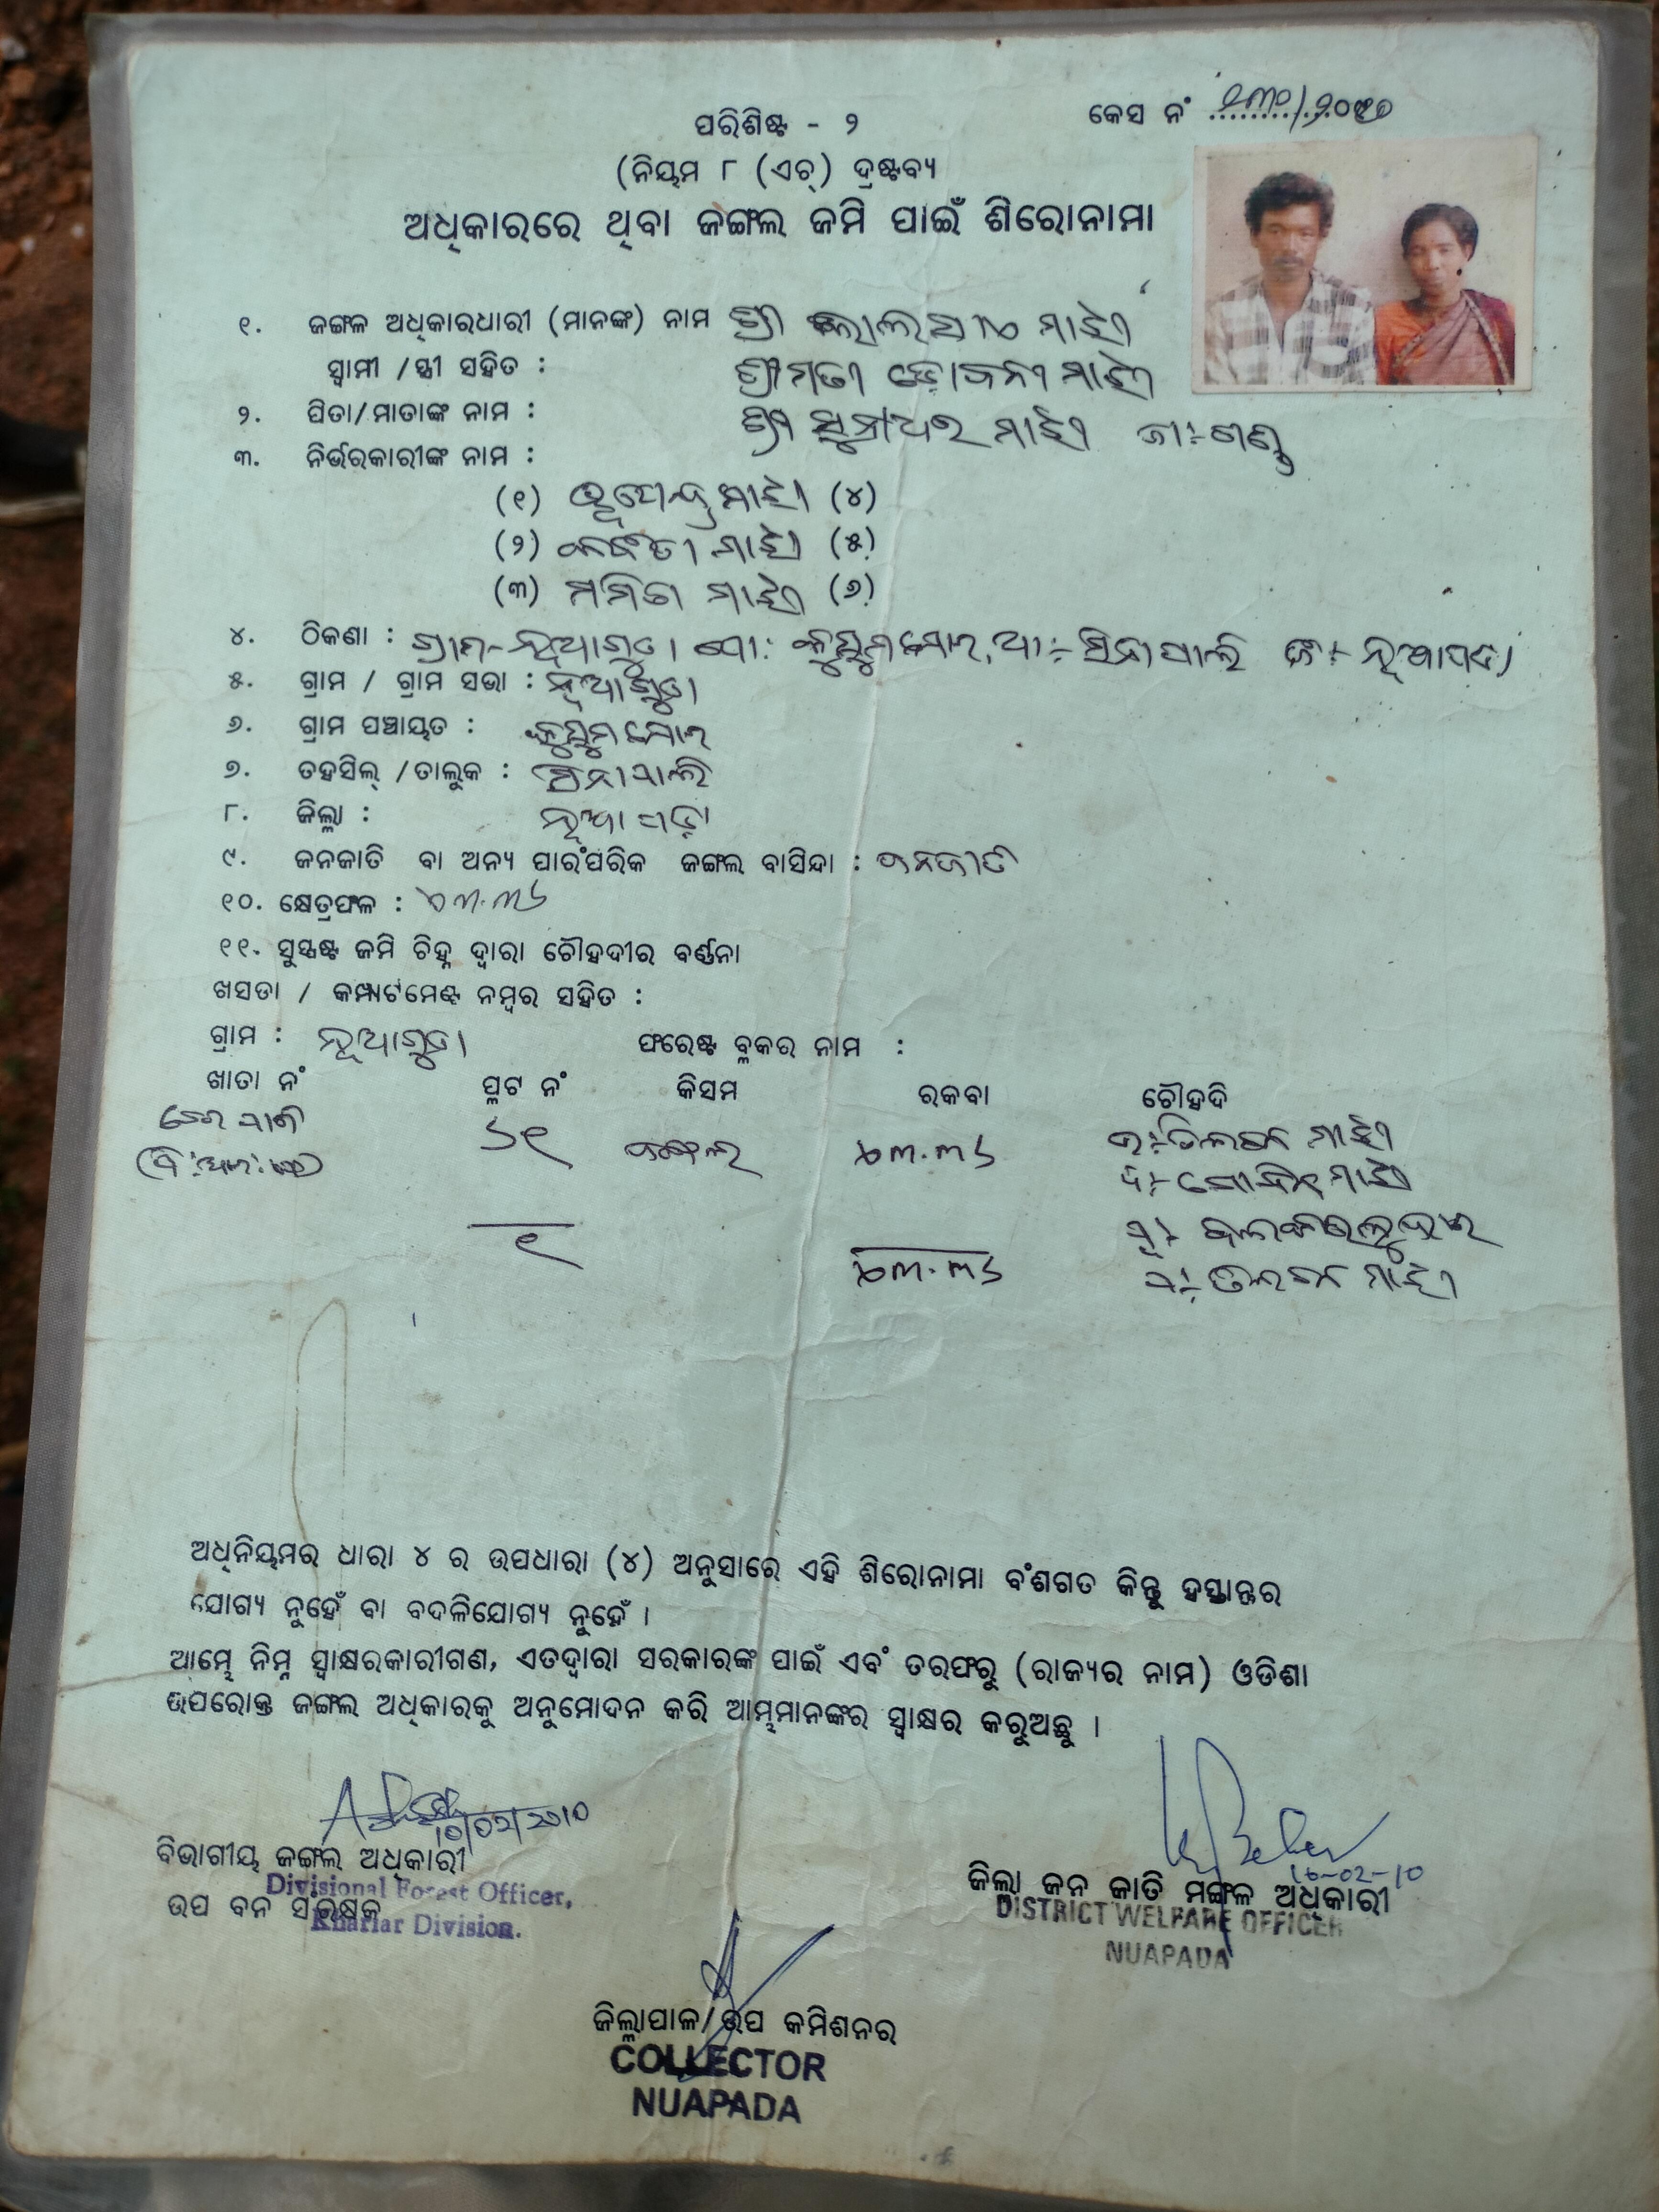 କେସ ନଂ ୨୩୦/୨୦୧୭
ପରିଶିଷ୍ଟ - ୨
(ନିୟମ ୮ (ଏଚ୍) ଦ୍ରଷ୍ଟବ୍ୟ
ଅଧିକାରରେ ଥିବା ଜଙ୍ଗଲ ଜମି ପାଇଁ ଶିରୋନାମା
୧. ଜଙ୍ଗଳ ଅଧିକାରଧାରୀ (ମାନଙ୍କ) ନାମ ଶ୍ରୀ ମାଝୀ
ସ୍ୱାମୀ /ସ୍ତ୍ରୀ ସହିତ : ଶ୍ରୀମତୀ ଭୋଜନୀ ମାଝୀ
୨. ପିତା/ମାତାଙ୍କ ନାମ : ଶ୍ରୀ ମାଝୀ ଜା:- ଗଣ୍ଡ
୩. ନିର୍ଭରକାରୀଙ୍କ ନାମ :
(୧) ଭୂପେନ୍ଦ୍ର ମାଝୀ (୪)
(୨) ମାଝୀ (୫)
(୩) ମମିତା ମାଝୀ (୬)
୪. ଠିକଣା : ଗ୍ରାମ-ନୂଆଗୁଡା ପୋ: ଥା:- ସିନାପାଲି ଜି:- ନୂଆପଡା
୫. ଗ୍ରାମ / ଗ୍ରାମ ସଭା : ନୂଆଗୁଡା
୬. ଗ୍ରାମ ପଞ୍ଚାୟତ :
୭. ତହସିଲ୍ /ତାଲୁକ : ସିନାପାଲି
୮. ଜିଲ୍ଲା : ନୂଆପଡ଼ା
୯. ଜନଜାତି ବା ଅନ୍ୟ ପାରଂପରିକ ଜଙ୍ଗଲ ବାସିନ୍ଦା : ଜନଜାତି
୧୦. କ୍ଷେତ୍ରଫଳ :
୧୧. ସୁସ୍ପଷ୍ଟ ଜମି ଚିହ୍ନ ଦ୍ୱାରା ଚୌହଦୀର ବର୍ଣ୍ଣନା
ଖସଡା / କମ୍ପାର୍ଟମେଣ୍ଟ ନମ୍ବର ସହିତ :
ଗ୍ରାମ : ନୂଆଗୁଡା ଫରେଷ୍ଟ ବ୍ଲକର ନାମ :
ଖାତା ନଂ ପ୍ଲଟ ନଂ କିସମ ରକବା ଚୌହଦି
୬୧ ଜଙ୍ଗଲ ଉ:- ମାଝୀ
ଦ:- ମାଝୀ
୧ ପୂ:-
ପ:- ମାଝୀ
ଅଧିନିୟମର ଧାରା ୪ ର ଉପଧାରା (୪) ଅନୁସାରେ ଏହି ଶିରୋନାମା ବଂଶଗତ କିନ୍ତୁ ହସ୍ତାନ୍ତର
ଯୋଗ୍ୟ ନୁହେଁ ବା ବଦଳିଯୋଗ୍ୟ ନୁହେଁ ।
ଆମ୍ଭେ ନିମ୍ନ ସ୍ୱାକ୍ଷରକାରୀଗଣ, ଏତଦ୍ୱାରା ସରକାରଙ୍କ ପାଇଁ ଏବଂ ତରଫରୁ (ରାଜ୍ୟର ନାମ) ଓଡିଶା
ଉପରୋକ୍ତ ଜଙ୍ଗଲ ଅଧିକାରକୁ ଅନୁମୋଦନ କରି ଆମ୍ଭମାନଙ୍କର ସ୍ୱାକ୍ଷର କରୁଅଛୁ ।
10/02/2010
ବିଭାଗୀୟ ଜଙ୍ଗଲ ଅଧିକାରୀ
Divisional Forest Officer,
ଉପ ବନ ସଂରକ୍ଷକ
Khariar Division.
10-02-10
ଜିଲ୍ଲା ଜନ ଜାତି ମଙ୍ଗଳ ଅଧିକାରୀ
DISTRICT WELFARE OFFICER
NUAPADA
ଜିଲ୍ଲାପାଳ/ଉପ କମିଶନର
COLLECTOR
NUAPADA